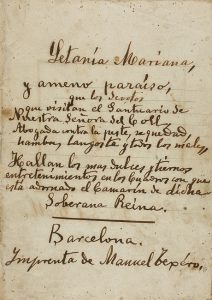 Letanía Mariana,
y ameno paraíso,
que los devotos
que visitan el Santuario de
Nuestra Señora del Coll
Abogada contra la peste, sequedad,
hambre, langosta y todos los males,
Hallan los mas dulces y tiernos
entretenimientos en los Cuadros con que
está adornado el Camarín de dicha
Soberana Reina.
Barcelona.
Imprenta de Manuel Texéro.